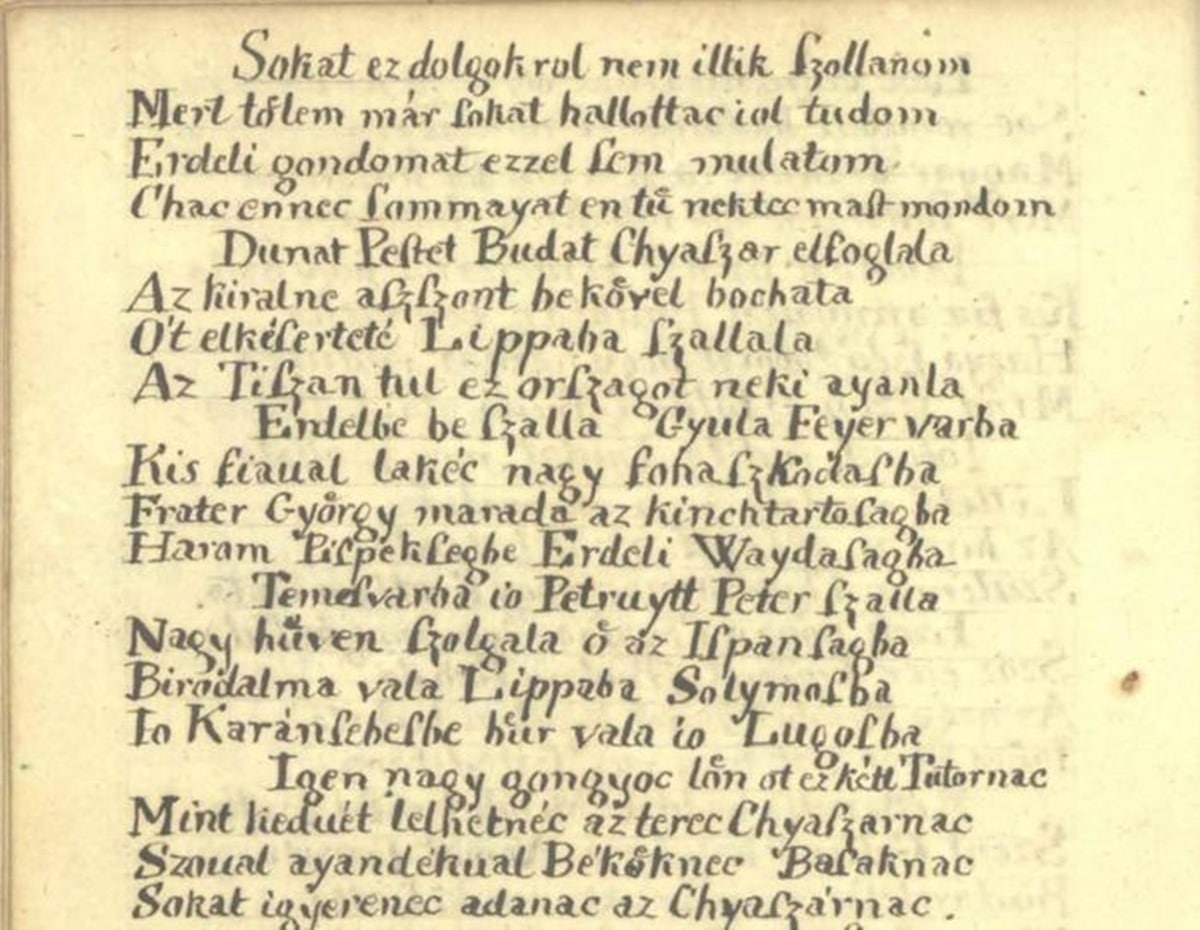 Sokat ez dolgokrul nem illik ſzollanom
Mert tőlem már ſokat hallottac iol tudom
Erdeli gondomat ezzel ſem mulatom
Chac ennec ſommayat en tű nektec maſt mondom
Dunat Peſtet Budat Chyaſzar elfoglala
Az kiralne aſzſzont bekővel bochata
Ot elkéſerteté Lippaba ſzallala
Az Tiſzan tul ez orſzagot neki ayanla
Erdelbe be ſzalla Gyula Feyer varba
Kis fiaual lakéc nagy fohaſzkodaſba
Frater Győrgy marada az kinchtartoſagba
Harom Piſpekſegbe Erdeli Waydaſagba
Temeſvarba io Petruytt Peter ſzalla
Nagy hűven ſzolgala ő az Iſpanſagba
Birodalma vala Lippaba Solymoſba
Io Karánſebeſbe hűr vala io Lugoſba
Igen nagy gongyoc lőn ot ez kétt Tutornac
Mint keduét lelhetnéc az terec Chyaſzarnac
Szoual ayandékual Békőknec Baſaknac
Sokat igyerenec adanac az Chyaſzárnac.